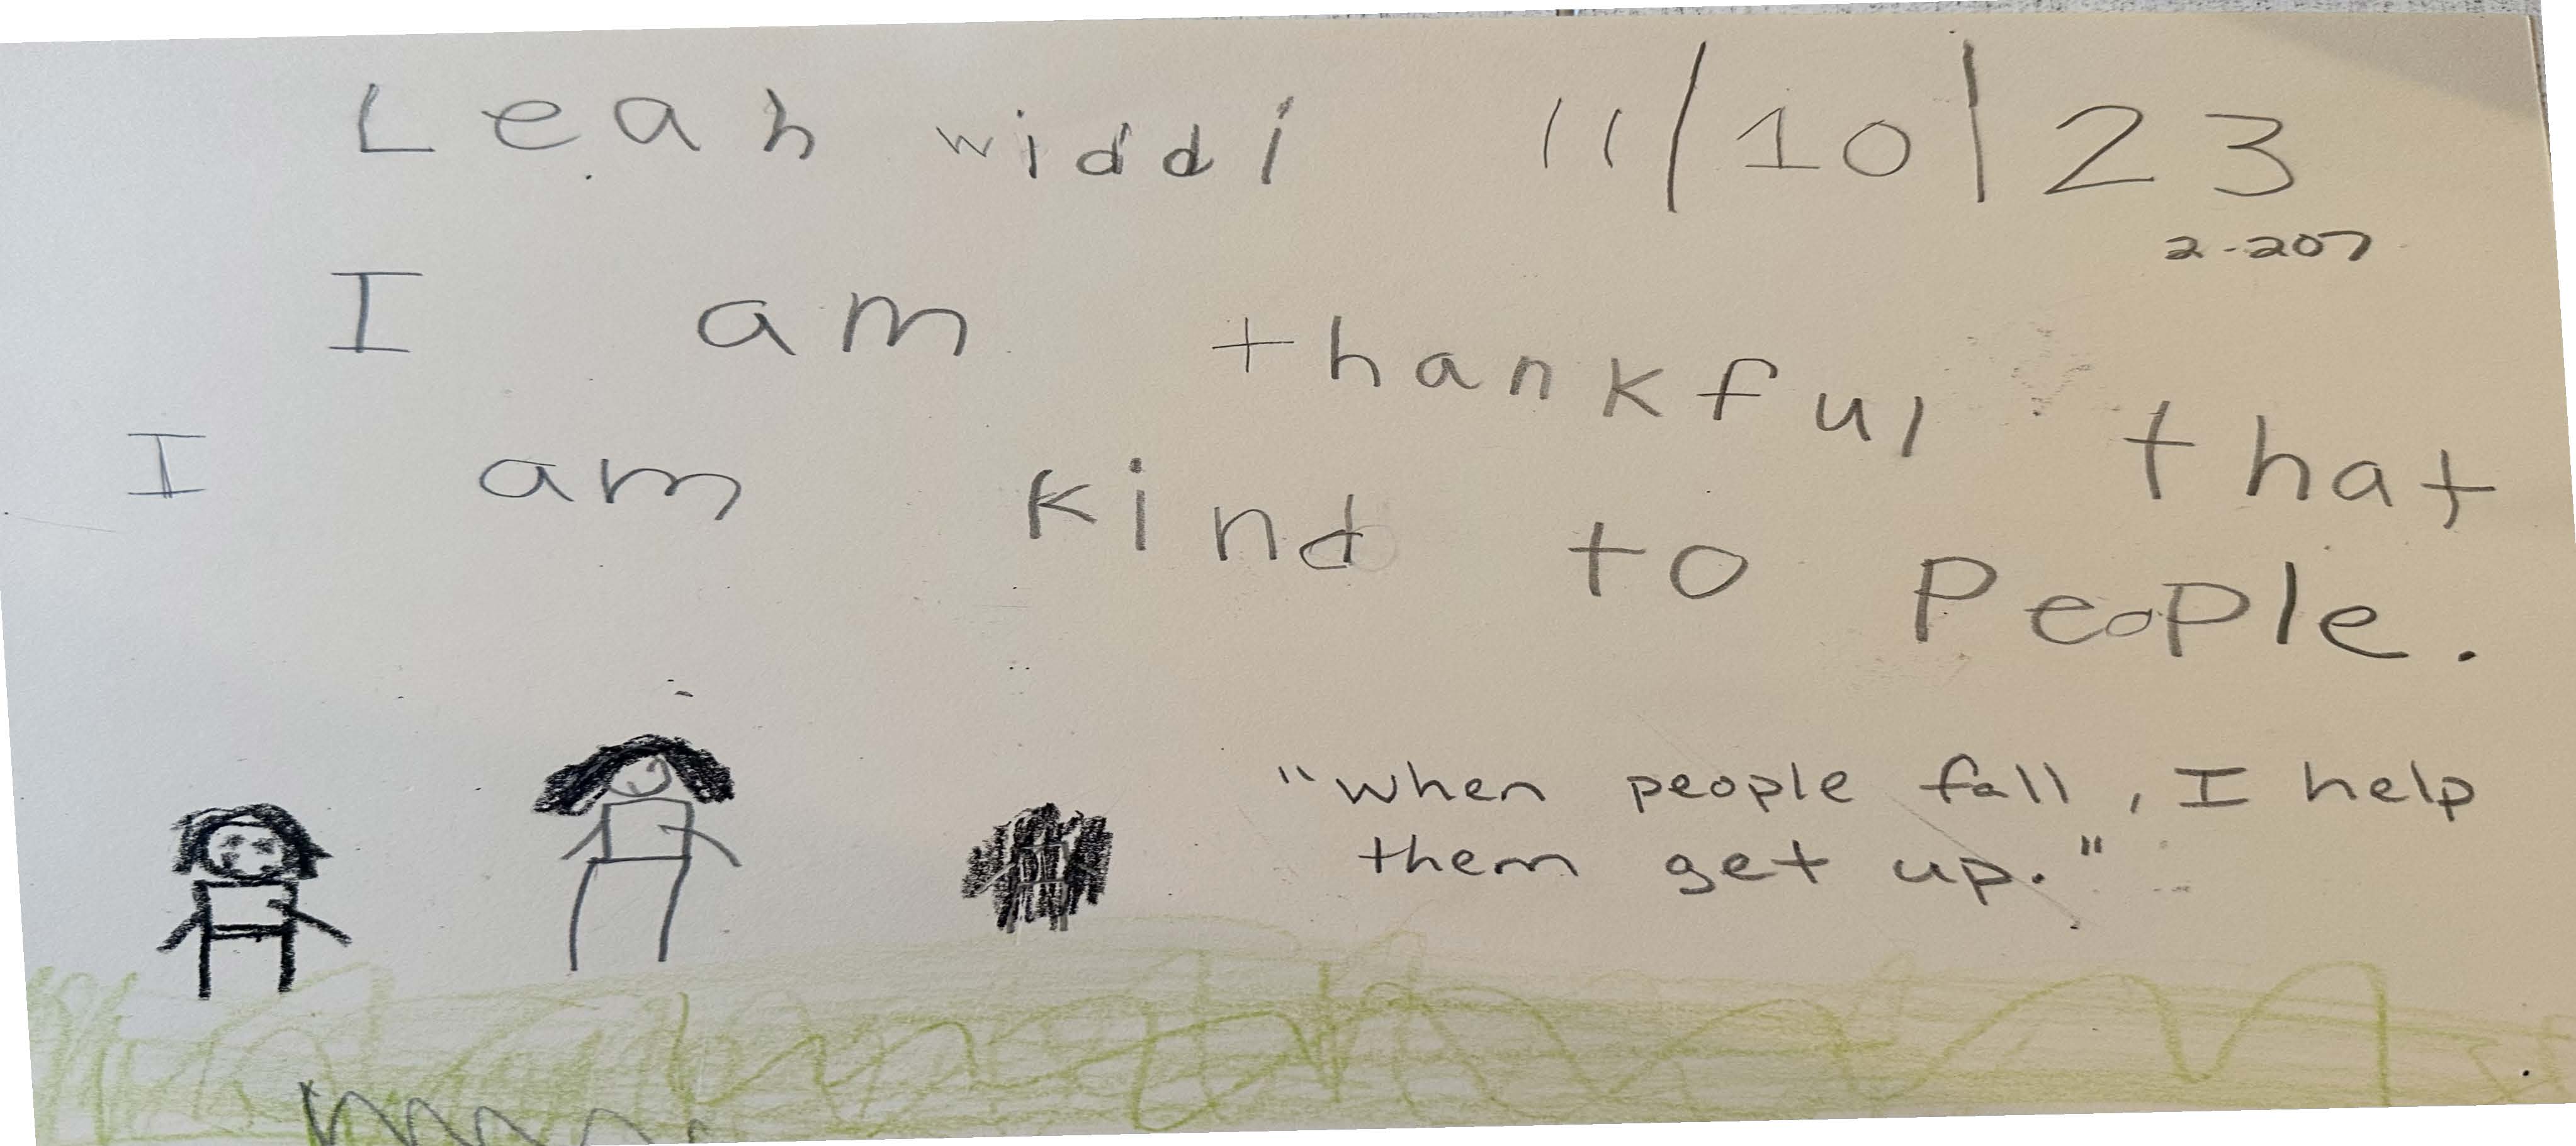 Leah widdi 11/10/23
2-207
I am thankful that
I am kind to People.
"When people fall, I help
them get up."